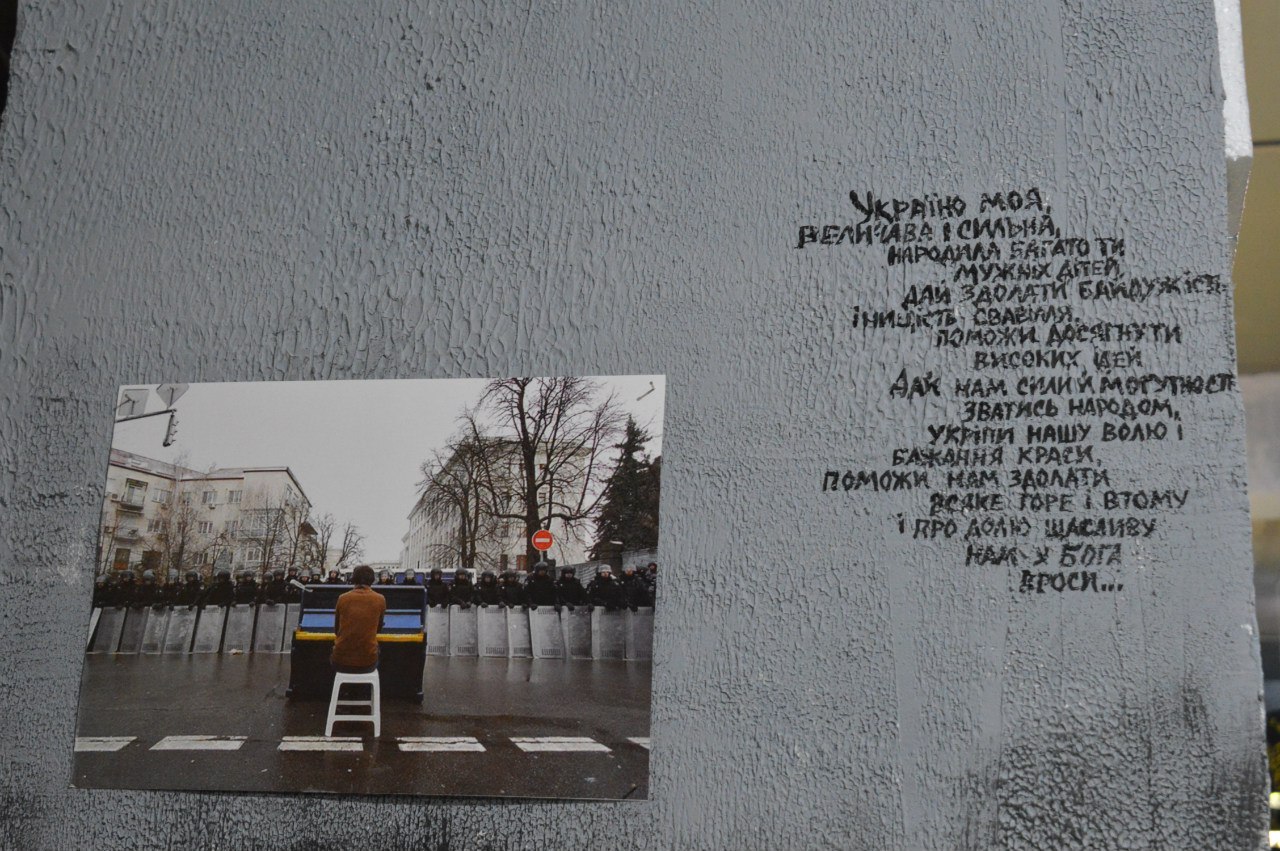 Україно моя,
величава і сильна,
народила багато ти
мужніх дітей,
дай здолати байдужість
і ницість свавілля,
поможи досягнути
високих ідей
Дай нам сили й могутності
зватись народом,
укріпи нашу волю і
бажання краси,
поможи нам здолати
всяке горе і втому
і про долю щасливу
нам у Бога
проси...